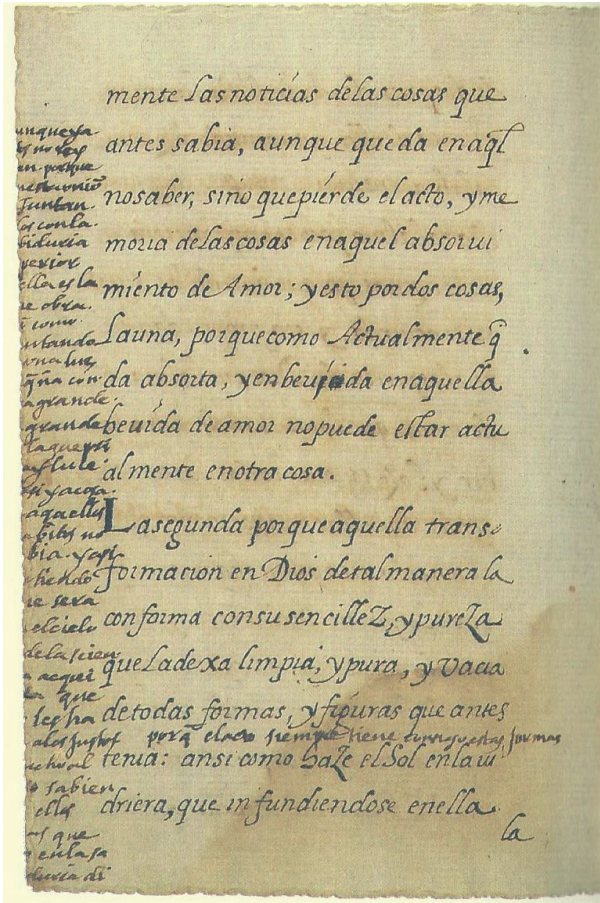 mente las noticias delas cosas que
antes sabia, aunque queda enaq̃l
nosaber, sino quepierde el acto, yme
moria delas cosas enaquel absorui
miento de Amor; yesto pordos cosas,
Launa, porquecomo Actualmente q̃
da absorta, yenbeuida enaquella
beuida de amor nopuede estar actu
almente enotra cosa.
Lasegunda porqueaquella trans
formacion en Dios detalmanera la
conforma consusencilleZ, ypureza
queLadexa limpia, ypura, y Vacia
detodas formas, yfiguras que antes
porq̃ elacto siempre tiene consigo estas formas
tenia: ansi como haZe elSol enlaui
driera, que infundiendose enella
la
unqueya
en porque
Juntan
los conla
biduria
perior
ella es la
e obra.
como
untando
una luz
q̃ña con
agrande
grande
laque
luze
aquellos
abitos no
bia. y asi
e sera
elcielo
dela scien
aequi
que
les ha
alos Justos
sabien
ellos
as que
enlasa
duria di